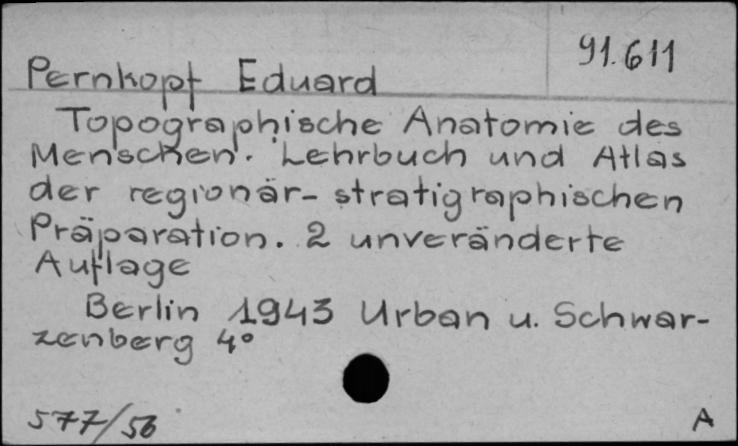 91.611
Pernkopf Eduard
Topographische Anatomie des
Menschen. Lehrbuch und Atlas
der regionär-stratigraphischen
Präparation. 2 unveränderte
Auflage
Berlin 1943 Urban u. Schwar-
zenberg 4°
577/56
A